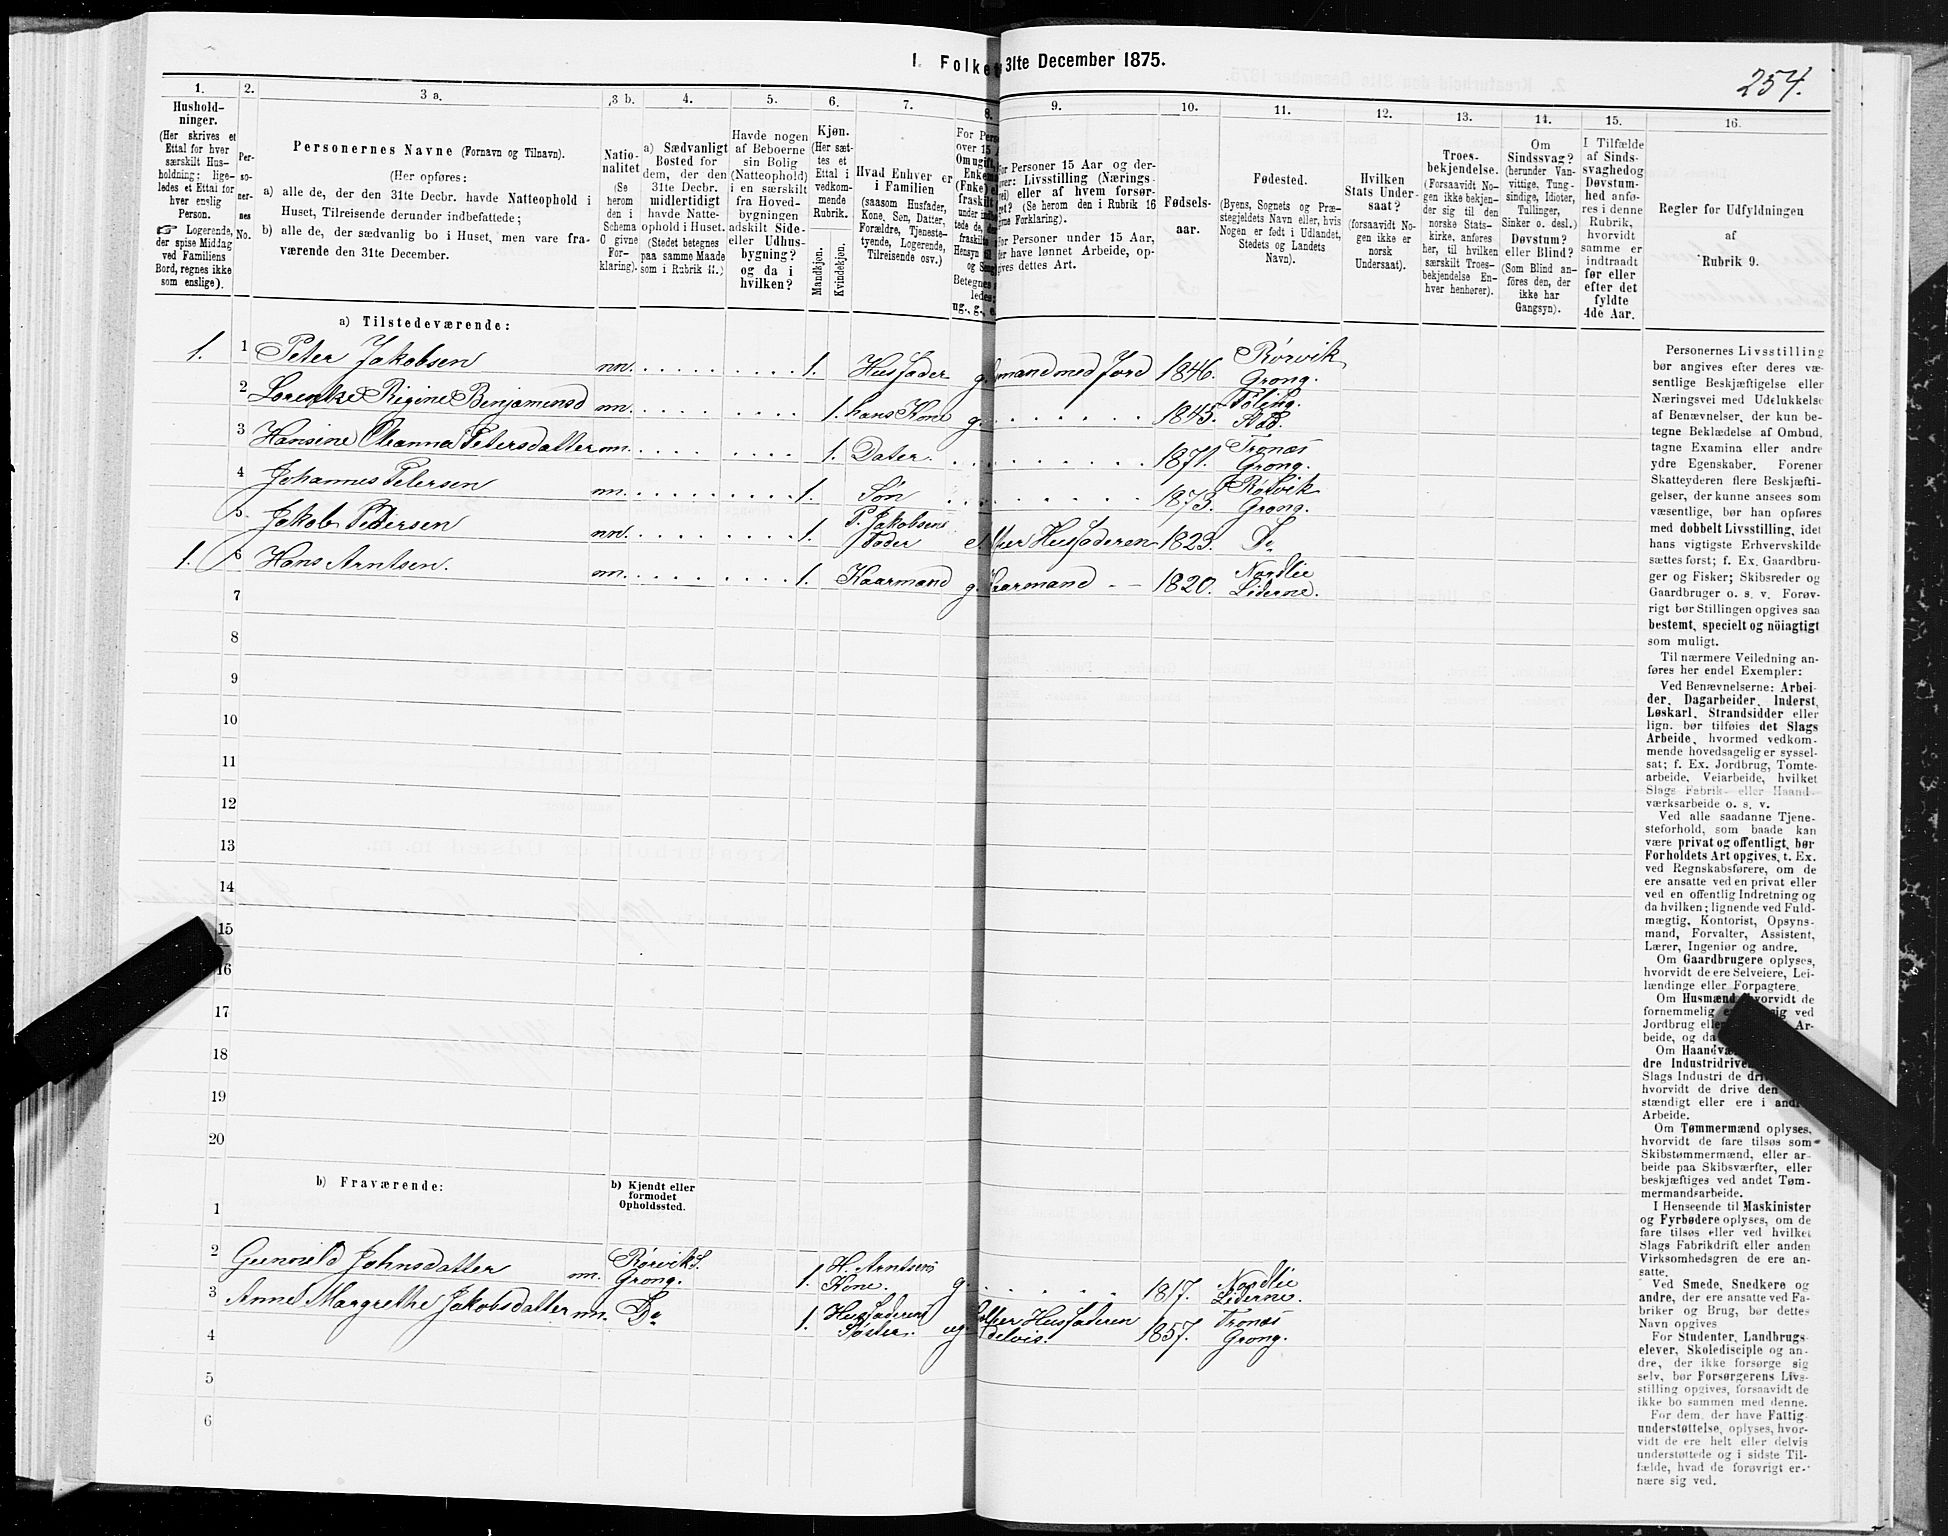 1. Folke 31te December 1875.
254.
1. 2. 3 a. 3 b. 4. 5. 6. 7. 8. 9. 10. 11. 12. 13. 14. 15. 16.
Hushold-
ninger.
(Her skrives et
Ettal for hver
særskilt Hus-
holdning; lige-
ledes et Ettal for
hver enslig
Person.
☞ Logerende,
der spise Middag
ved Familiens
Bord, regnes ikke
som enslige).
Per-
so-
ner-
nes
No.
Personernes Navne (Fornavn og Tilnavn).
(Her opføres:
a) alle de, der den 31te Decbr. havde Natteophold i
Huset, Tilreisende derunder indbefattede;
b) alle de, der sædvanlig bo i Huset, men vare fra-
værende den 31te December.
Natio-
nalitet
(Se
herom
den i
Schema
C givne
For-
klaring).
a) Sædvanligt
Bosted for
dem, der den
31te Decbr.
midlertidigt
havde Natte-
ophold i Huset.
(Stedet betegnes
paa samme Maade
som i Rubrik 11.)
Havde nogen
af Beboerne
sin Bolig
(Natteophold)
i en særskilt
fra Hoved-
bygningen
adskilt Side-
eller Udhus-
bygning?
og da i
hvilken?
Kjøn.
(Her sæt-
tes et
Ettal i
vedkom-
mende
Rubrik.
Mandkjøn.
Kvindekjøn.
Hvad Enhver er
i Familien
(saasom Husfader,
Kone, Søn, Datter,
Forældre, Tjeneste-
tyende, Logerende,
Tilreisende osv.)
For Pers
over 15
Om ugift,
Enkem
(Enke) e
fraskilt
Hensyn til
Betegnes
ledes:
ug., g., e.
For Personer 15 Aar og der-
over: Livsstilling (Nærings-
vei) eller af hvem forsør-
get? (Se herom den i Rubrik 16
givne Forklaring).
For Personer under 15 Aar,
der have lønnet Arbeide, op-
gives dettes Art.
Fødsels-
aar.
Fødested.
(Byens, Sognets og Præ-
stegjeldets Navn eller, hvis
Nogen er født i Udlandet,
Stedets og Landets
Navn).
Hvilken
Stats Under-
saat?
(forsaavidt No-
gen ikke er
norsk
Undersaat).
Troes-
bekjendelse.
(Forsaavidt No-
gen ikke bekjen-
der sig til den
norske Stats-
kirke, anføres
her, til hvilken
særskilt Troes-
bekjendelse En-
hver henhører).
Om
Sindssvag?
(herunder Van-
vittige, Tung-
sindige, Idioter,
Tullinger,
Sinker o. desl.)
Døvstum?
eller Blind?
(Som Blind an-
føres den, der
ikke har
Gangsyn).
I Tilfælde
af Sinds-
svaghed og
Døvstum-
hed anfø-
res i denne
Rubrik,
hvorvidt
samme er
indtraadt
før eller
efter det
fyldte
4de Aar.
Regler for Udfyldningen
af
Rubrik 9.
a) Tilstedeværende:
1. 1 Peter Jakobsen nn. 1. Husfader g. mand med Jord 1846. Rørvik Grong.
2 Lorentze Rigine Benjamensd nn. 1. hans Kone g. 1845. Føling. Stod.
3 Hansine Oleanna Petersdatter nn. 1. Dater. 1871. Tronæs Grong.
4 Johannes Petersen nn. 1. Søn 1873. Rørvik Grong.
5 Jakob Pedersen nn. 1. P. Jakobsens Fader e. Husfaderen 1823. Do
1. 6 Hans Arntsen. nn. 1. Kaarmand g. Kaarmand 1820. Nordlie Lierne.
7
8
9
10
11
12
13
14
15
16
17
18
19
20
b) Fraværende:
b) Kjendt eller
formodet
Opholdssted.
1
2 Gunnild Johnsdatter nn. Rørvik Grong. 1. H. Arntsens Kone. g. 1817. Nordlie Lierne.
3 Anne Margrethe Jakobsdatter nn. Do 1. Husfaderens Søster. ug. Husfaderen delvis. 1857. Tronæs Grong.
4
5
6
Personernes Livsstilling
bør angives efter deres væ-
sentlige Beskjæftigelse eller
Næringsvei med Udelukkelse
af Benævnelser, der kun be-
tegne Beklædelse af Ombud,
tagne Examina eller andre
ydre Egenskaber. Forener
Skatteyderen flere Beskjæfti-
gelser, der kunne ansees som
væsentlige, bør han opføres
med dobbelt Livsstilling, idet
hans vigtigste Erhvervskilde
sættes først; f. Ex. Gaardbru-
ger og Fisker; Skibsreder og
Gaardbruger o. s. v. Forøv-
rigt bør Stillingen opgives saa
bestemt, specielt og nöiagtigt
som muligt.
Til nærmere Veiledning an-
føres her endel Exempler:
Ved Benævnelserne: Arbei-
der, Dagarbeider, Inderst,
Løskarl, Strandsidder eller
lign. bør tilføies det Slags
Arbeide, hvormed vedkom-
mende hovedsagelig er syssel-
sat; f. Ex. Jordbrug, Tomte-
arbeide, Veiarbeide, hvilket
Slags Fabrik- eller Haand-
værksarbeide o. s. v.
Ved alle saadanne Tjene-
steforhold, som baade kan
være privat og offentligt, bør
Forholdets Art opgives, t. Ex.
ved Regnskabsførere, om de
ere ansatte ved en privat eller
ved en offentlig Indretning og
da hvilken; lignende ved Fuld-
mægtig, Kontorist, Opsyns-
mand, Forvalter, Assistent,
Lærer, Ingeniør og andre.
Om Gaardbrugere oplyses,
hvorvidt de ere Selveiere, Lei-
lændinge eller Forpagtere.
Om Husmænd hvorvidt de
fornemmelig sig ved
Jordbrug elle Ar-
beide, og da
Om Haandvæ
dre Industridrive
Slags Industri de dri
hvorvidt de drive den
stændigt eller ere i andr
Arbeide.
Om Tømmermænd oplyses,
hvorvidt de fare tilsøs som
Skibstømmermænd, eller ar-
beide paa Skibsværfter, eller
beskjæftiges ved andet Tøm-
mermandsarbeide.
I Henseende til Maskinister
og Fyrbødere oplyses, om de
fare tilsøs eller ved hvilket
Slags Fabrikdrift eller anden
Virksomhedsgren de ere an-
satte.
Ved Smede, Snedkere og
andre, der ere ansatte ved Fa-
briker og Brug, bør dettes
Navn opgives
For Studenter, Landbrugs-
elever, Skoledisciple og an-
dre, der ikke forsørge sig
selv, bør Forsørgerens Livs-
stilling opgives, forsaavidt de
ikke bo sammen med denne.
For dem, der have Fattig-
understøttelse, oplyses, hvor-
vidt de ere helt eller delvis
understøttede og i sidste Til-
fælde, hvad de forøvrigt er-
nære sig ved.